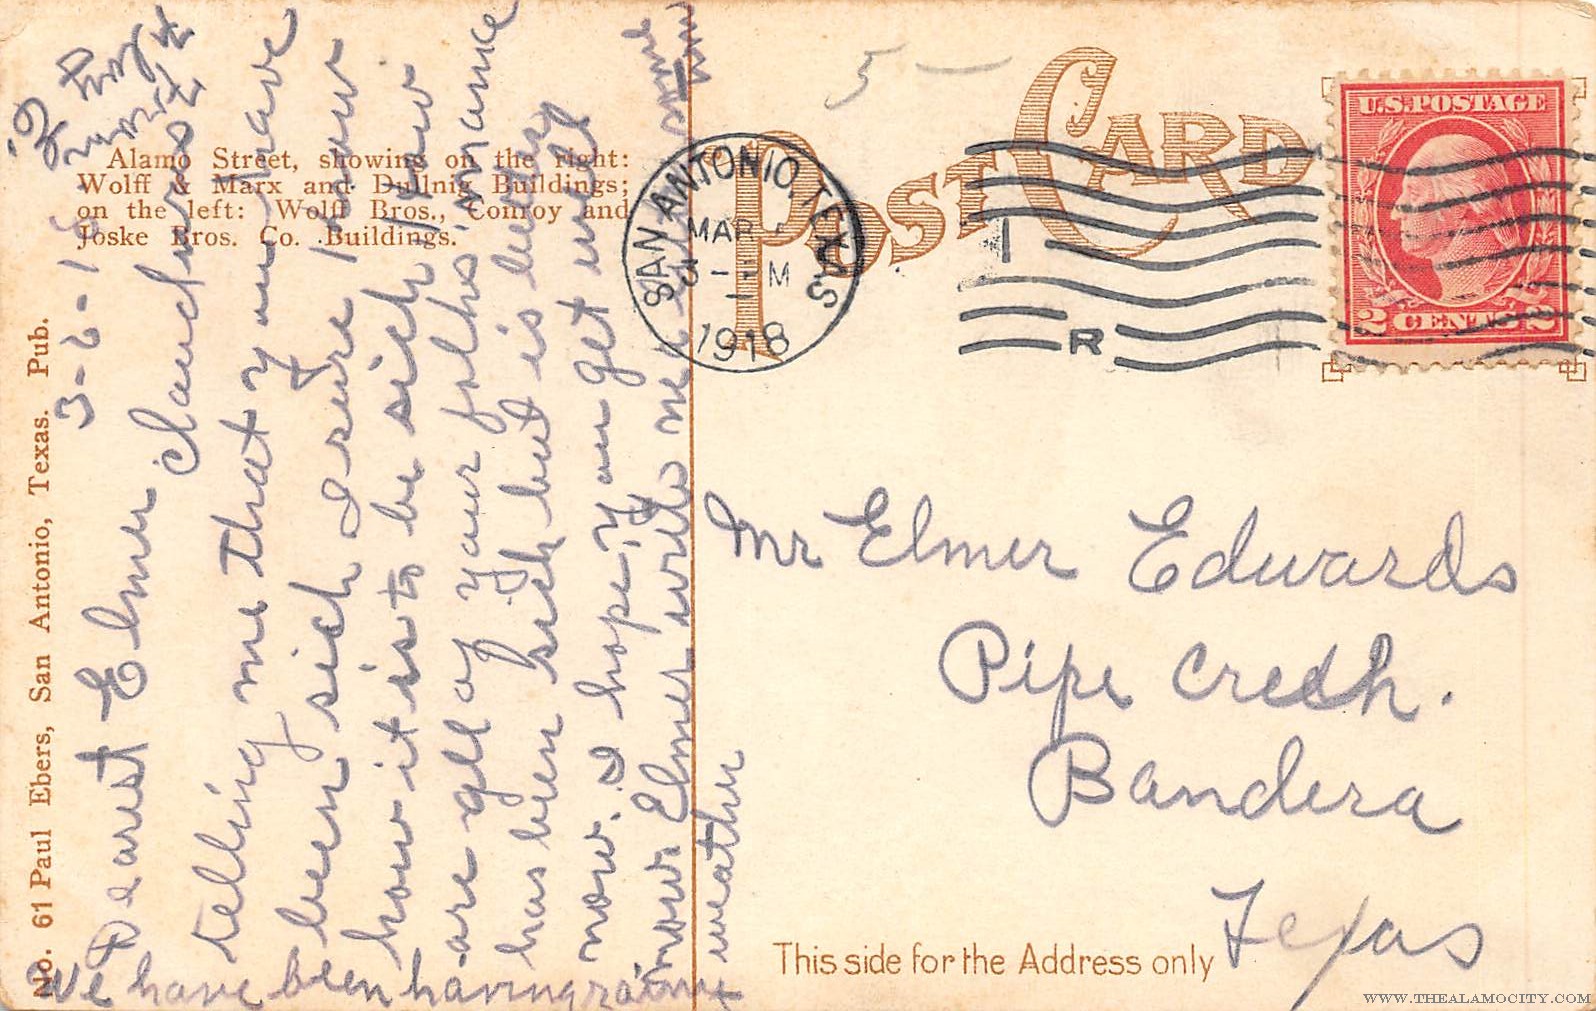 POST CARD
Alamo Street, showing on the right:
Wolff & Marx and Dullnig Buildings;
on the left: Wolff Bros., Conroy and
Joske Bros. Co. Buildings.
No. 61 Paul Ebers, San Antonio, Texas. Pub.
SAN ANTONIO, TEXAS
MAR
M
1918
R
U.S. POSTAGE
2 CENTS 2
5 —
3-6-18
Dearest Elmer
telling me that you have
been sick I sure know
how it is to be sick how
are all of your folks mance
has been sick but is better
now. I hope you get well
now. Elmer write me
We have been having
weather
Mr Elmer Edwards
Pipe Creek.
Bandera
Texas
This side for the Address only
WWW.THEALAMOCITY.COM